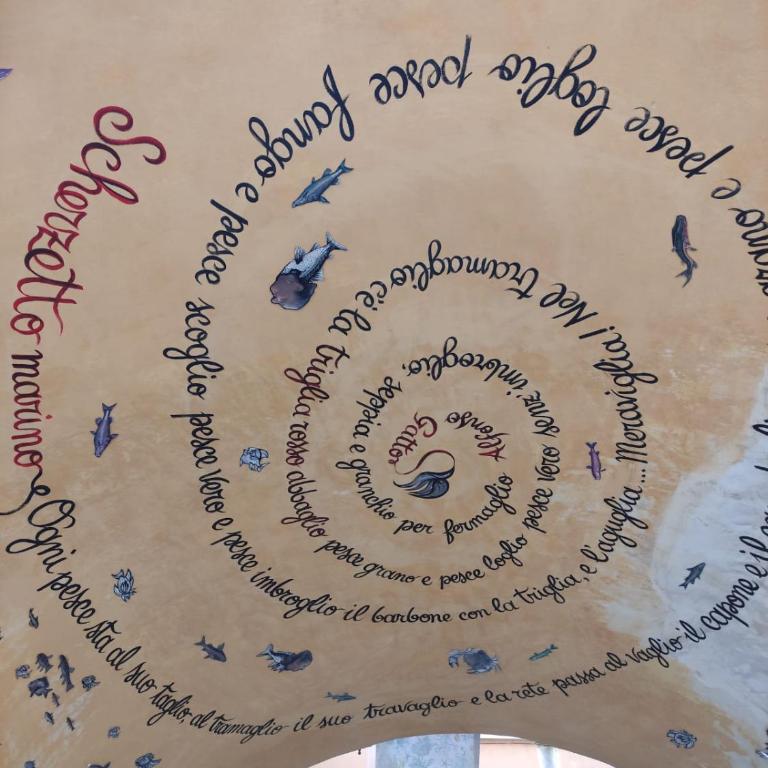 Scherzetto marino
Ogni pesce sta al suo taglio, al tramaglio il suo travaglio e la rete passa al vaglio il capone e il
e pesce loglio pesce fango e pesce scoglio pesce vero e pesce imbroglio il barbone con la triglia, e l'aguglia... Meraviglia! Nel tramaglio c'è la triglia rosso abbaglio pesce grano e pesce loglio pesce vero senz'imbroglio, seppia e granchio per fermaglio
Alfonso Gatto